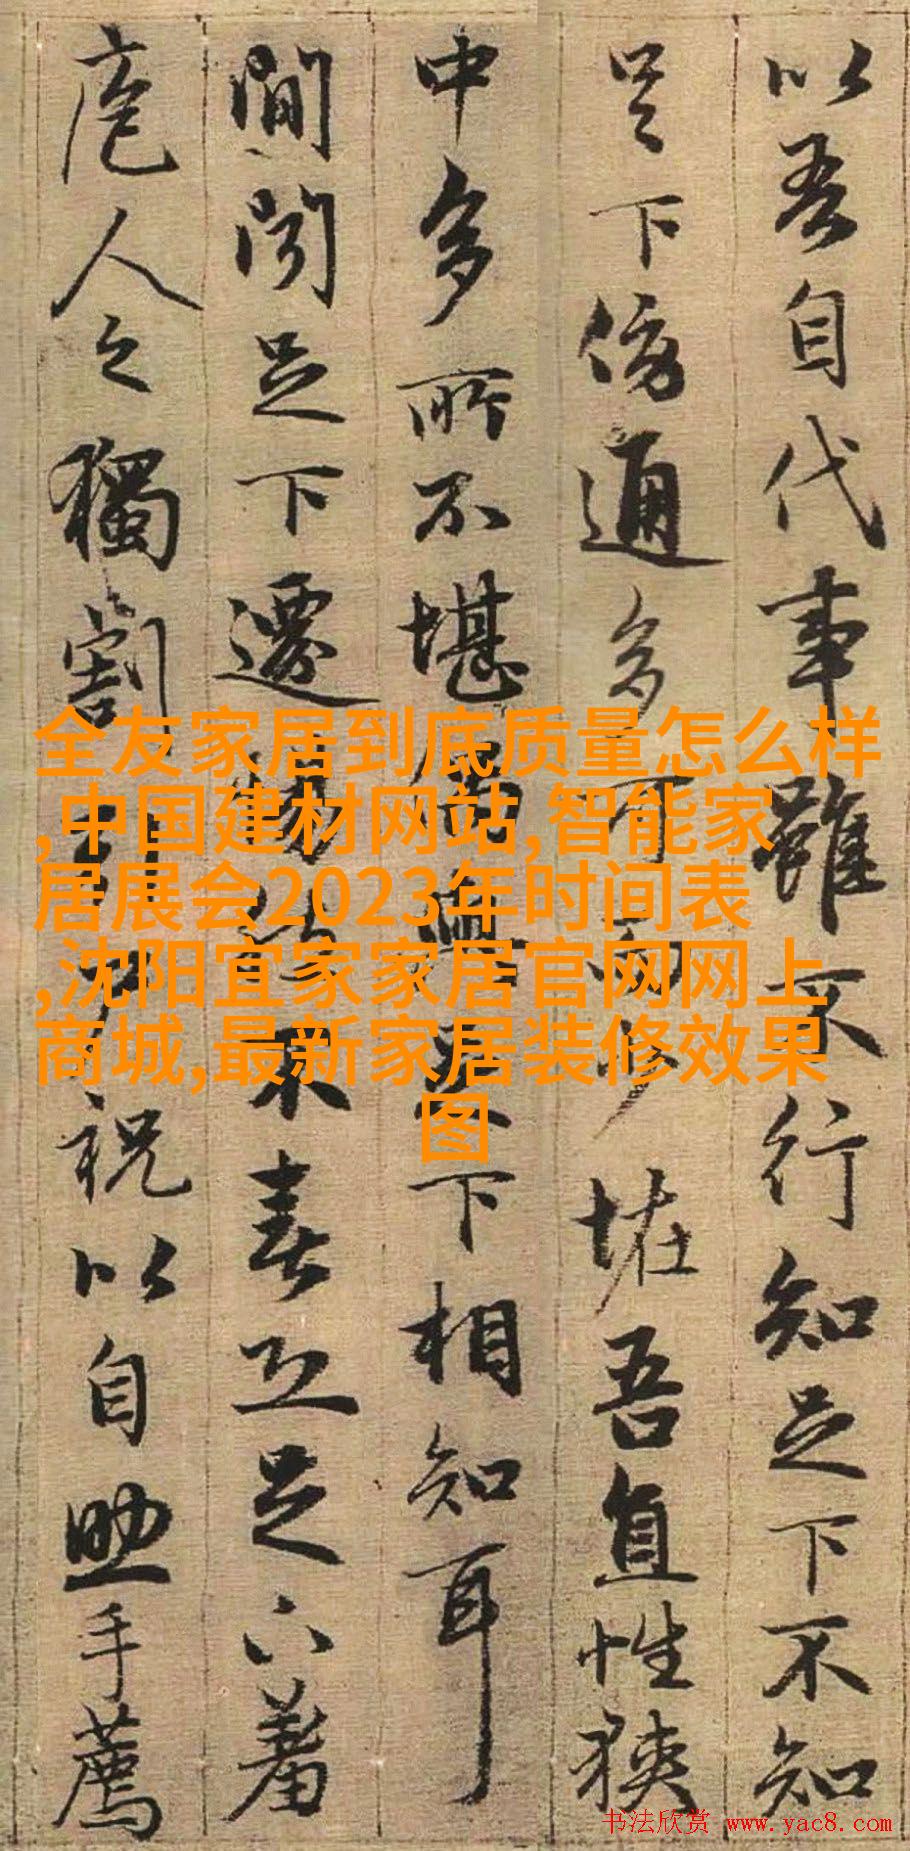 以吾自代事雖不行知足下不知
足下傍通多可而少恠吾直性狹
中多所不堪偶與足下相知耳
間聞足下遷惕然不喜恐足下羞
庖人之獨割引尸祝以自助手薦
全友家居到底质量怎么样
,中国建材网站,智能家
居展会2023年时间表
,沈阳宜家家居官网网上
商城,最新家居装修效果
图
书法欣赏 www.yac8.com